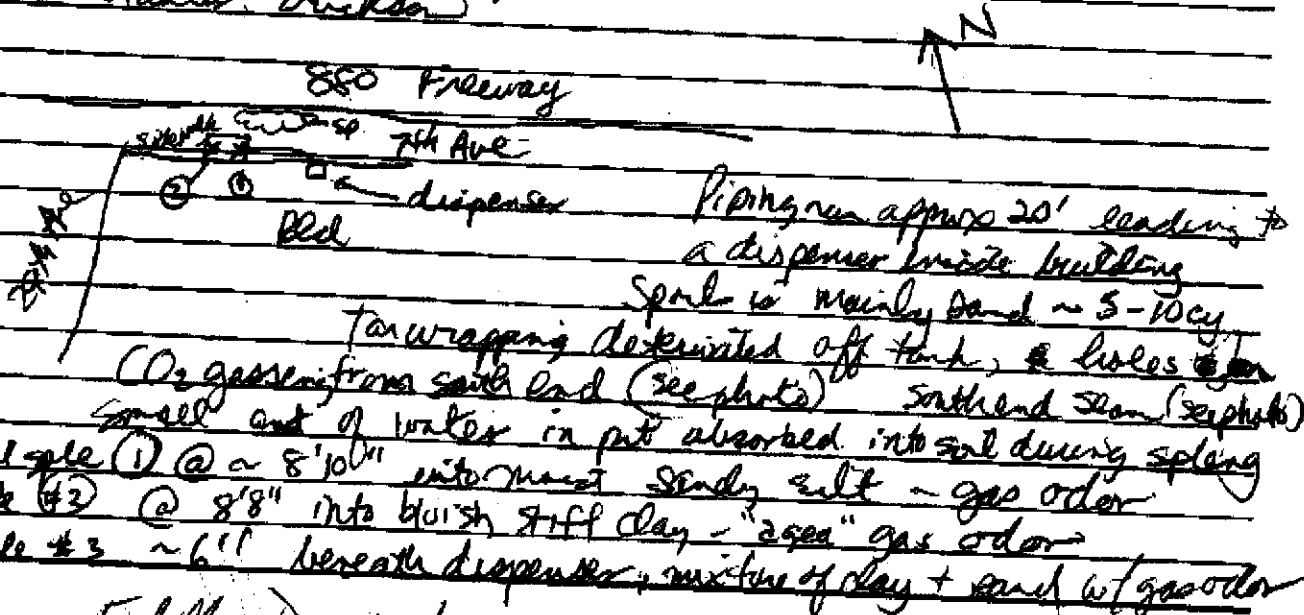 Dickson
N
880 Freeway
sidewalk sp. 7th Ave
② ① dispenser
Bld
Piping run approx 20' leading to
a dispenser inside building
Spoil is mainly sand ~ 5-10cy
Tar wrapping deteriorated off tank, holes
CO2 gassing from south end (see photo) south end seam (see photo)
small amt of water in pit absorbed into soil during spleng
sple ① @ ~ 8'10" into moist sandy silt ~ gas odor
#2 @ 8'8" into bluish stiff clay - "aged" gas odor
#3 ~6" beneath dispenser, mixture of clay + sand w/ gas odor